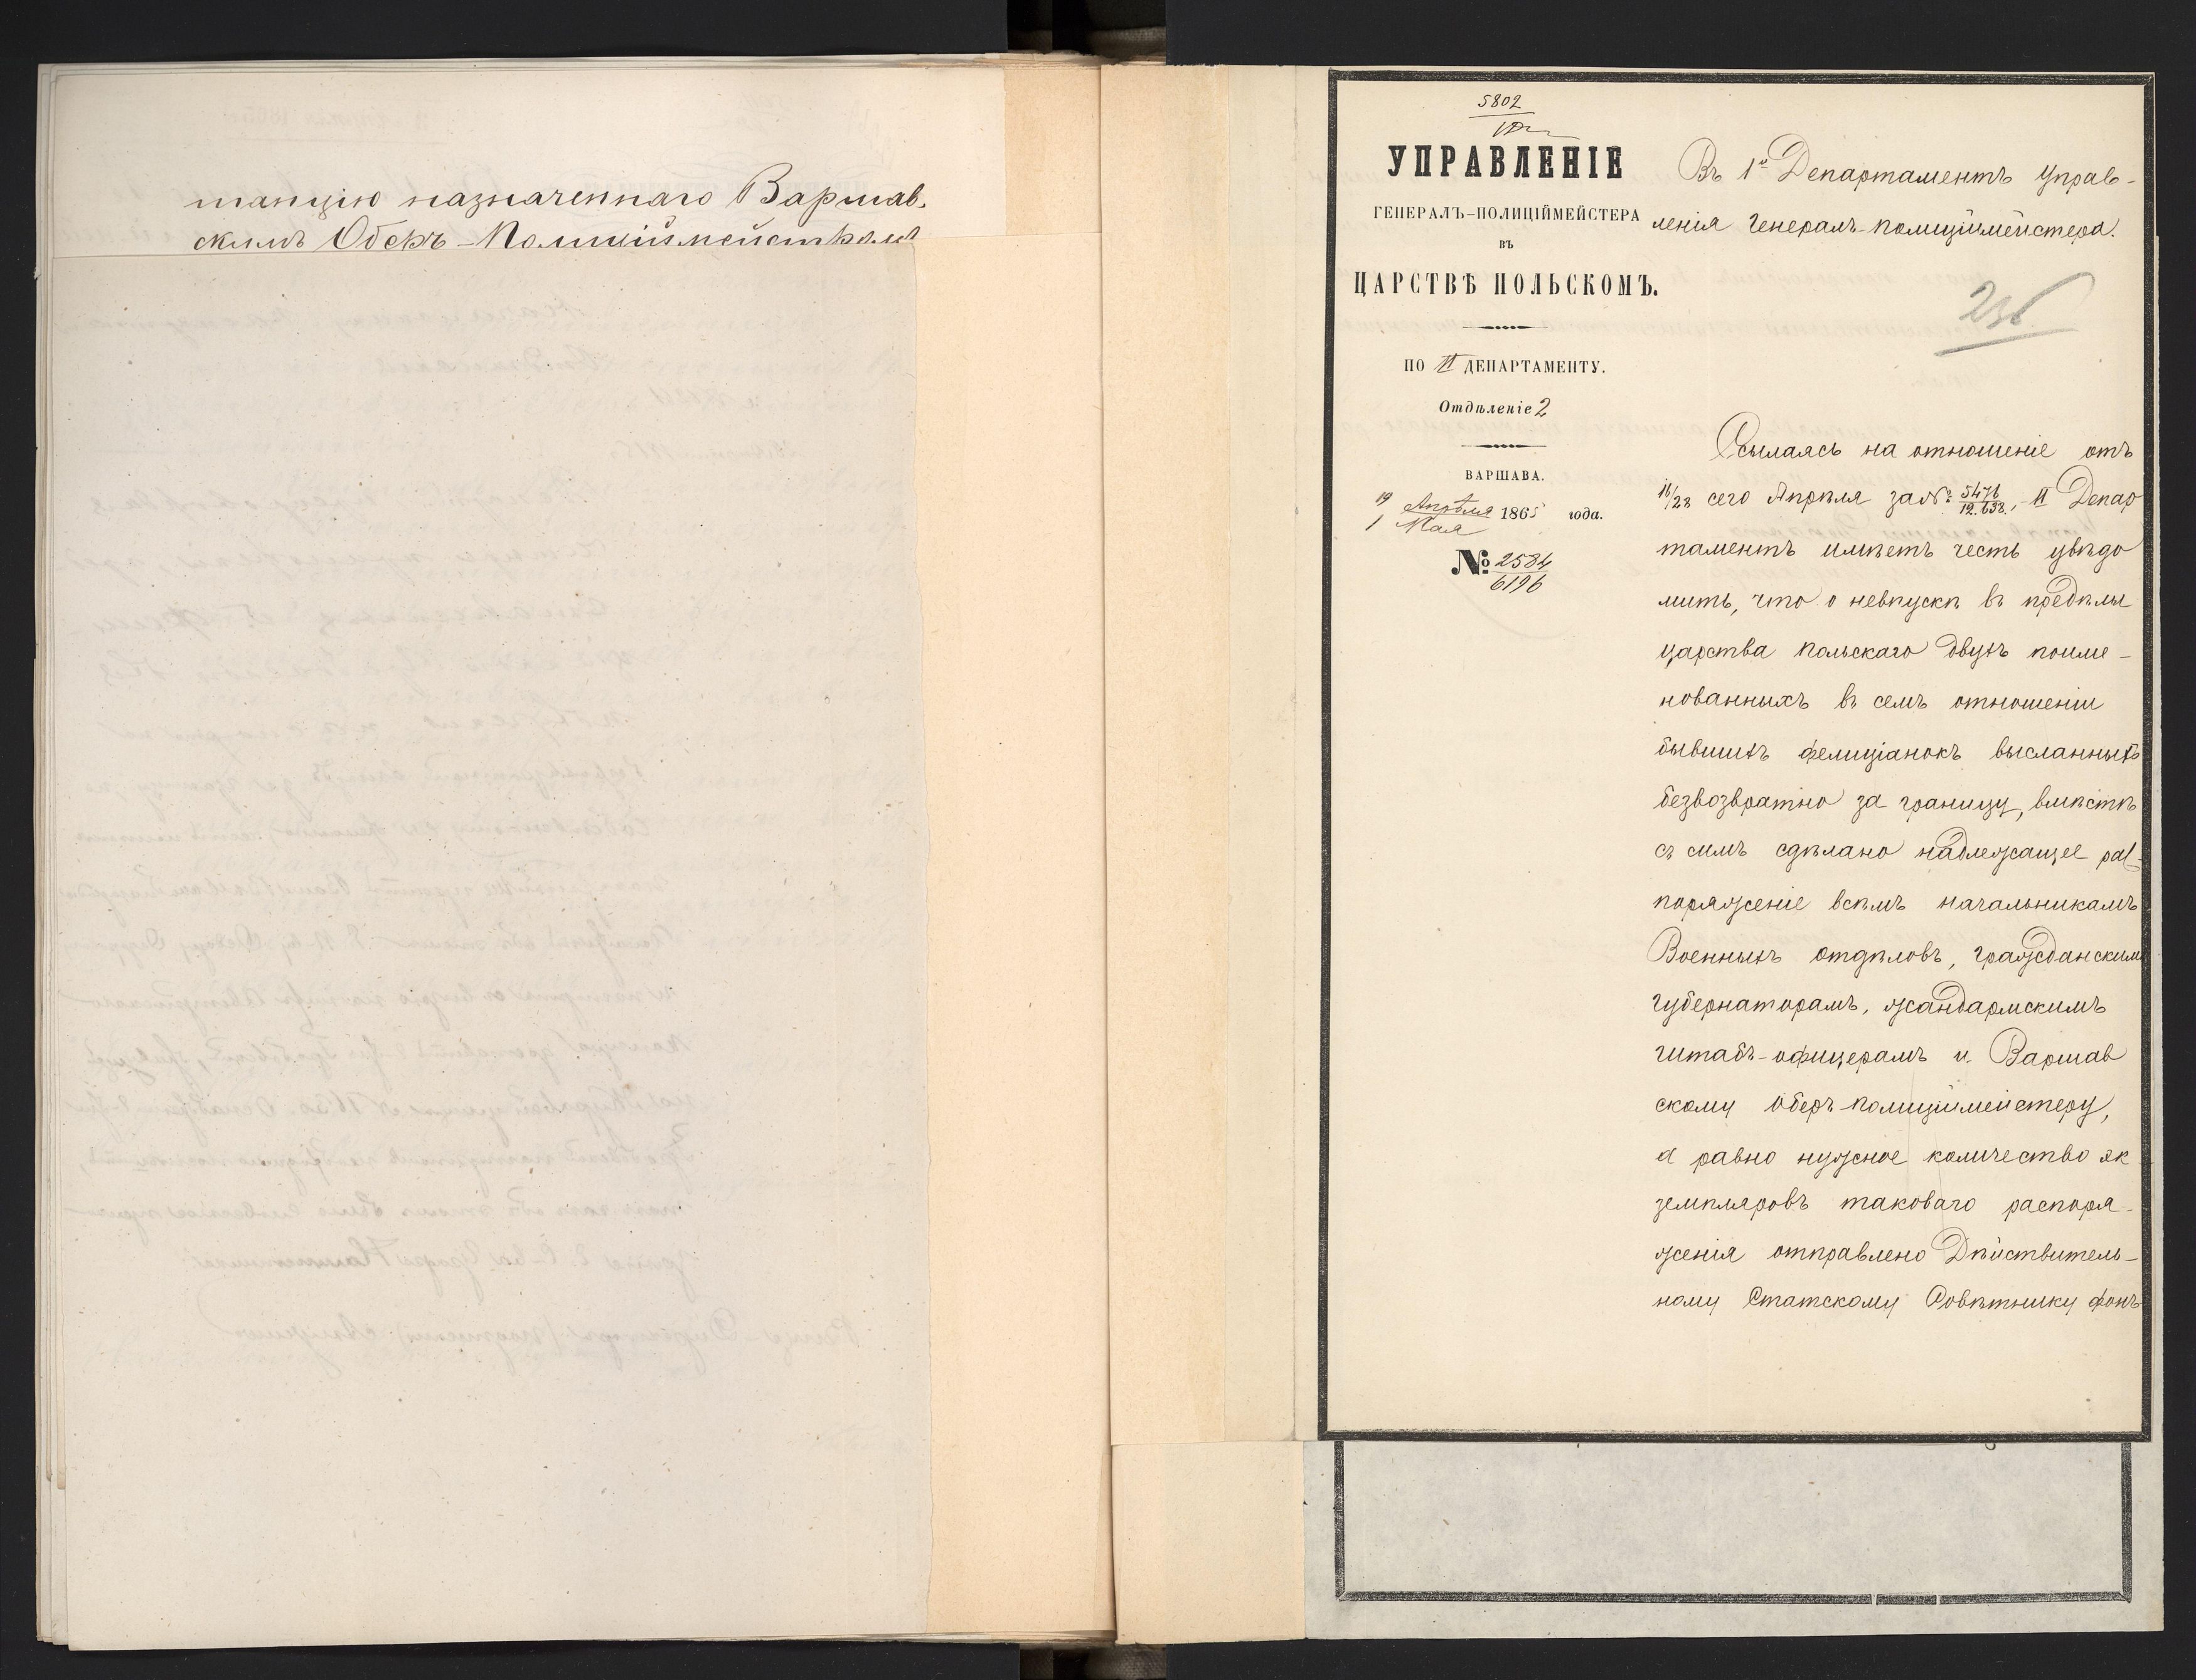 танцію назначеннаго Варшав-
скимъ Оберъ-Полиціймейстеромъ
5802
УПРАВЛЕНІЕ
ГЕНЕРАЛЪ-ПОЛИЦІЙМЕЙСТЕРА
ВЪ
ЦАРСТВѢ ПОЛЬСКОМЪ.
ПО II ДЕПАРТАМЕНТУ.
Отдѣленіе 2
ВАРШАВА.
19 Апрѣля 1865 года.
1 Мая
№ 2584
6196
Въ 1й Департаментъ Управ-
ленія Генералъ-полиціймейстера.
Ссылаясь на отношеніе отъ
16/28 сего Апрѣля за № 5476/12.638., II Депар
таментъ имѣетъ честь увѣдо
мить, что о невпускѣ въ предѣлы
царства польскаго двухъ поиме-
нованныхъ въ семъ отношеніи
бывшихъ фелиціанокъ высланныхъ
безвозвратно за границу, вмѣстѣ
съ симъ сдѣлано надлежащее рас-
поряженіе всѣмъ начальникамъ
Военныхъ отдѣловъ, гражданскимъ
губернаторамъ, жандармскимъ
штабъ-офицерамъ и Варшав
скому Оберъ-полиціймейстеру,
а равно нужное количество эк
земпляровъ таковаго распоря-
женія отправлено Дѣйствитель-
ному Статскому Совѣтнику фонъ